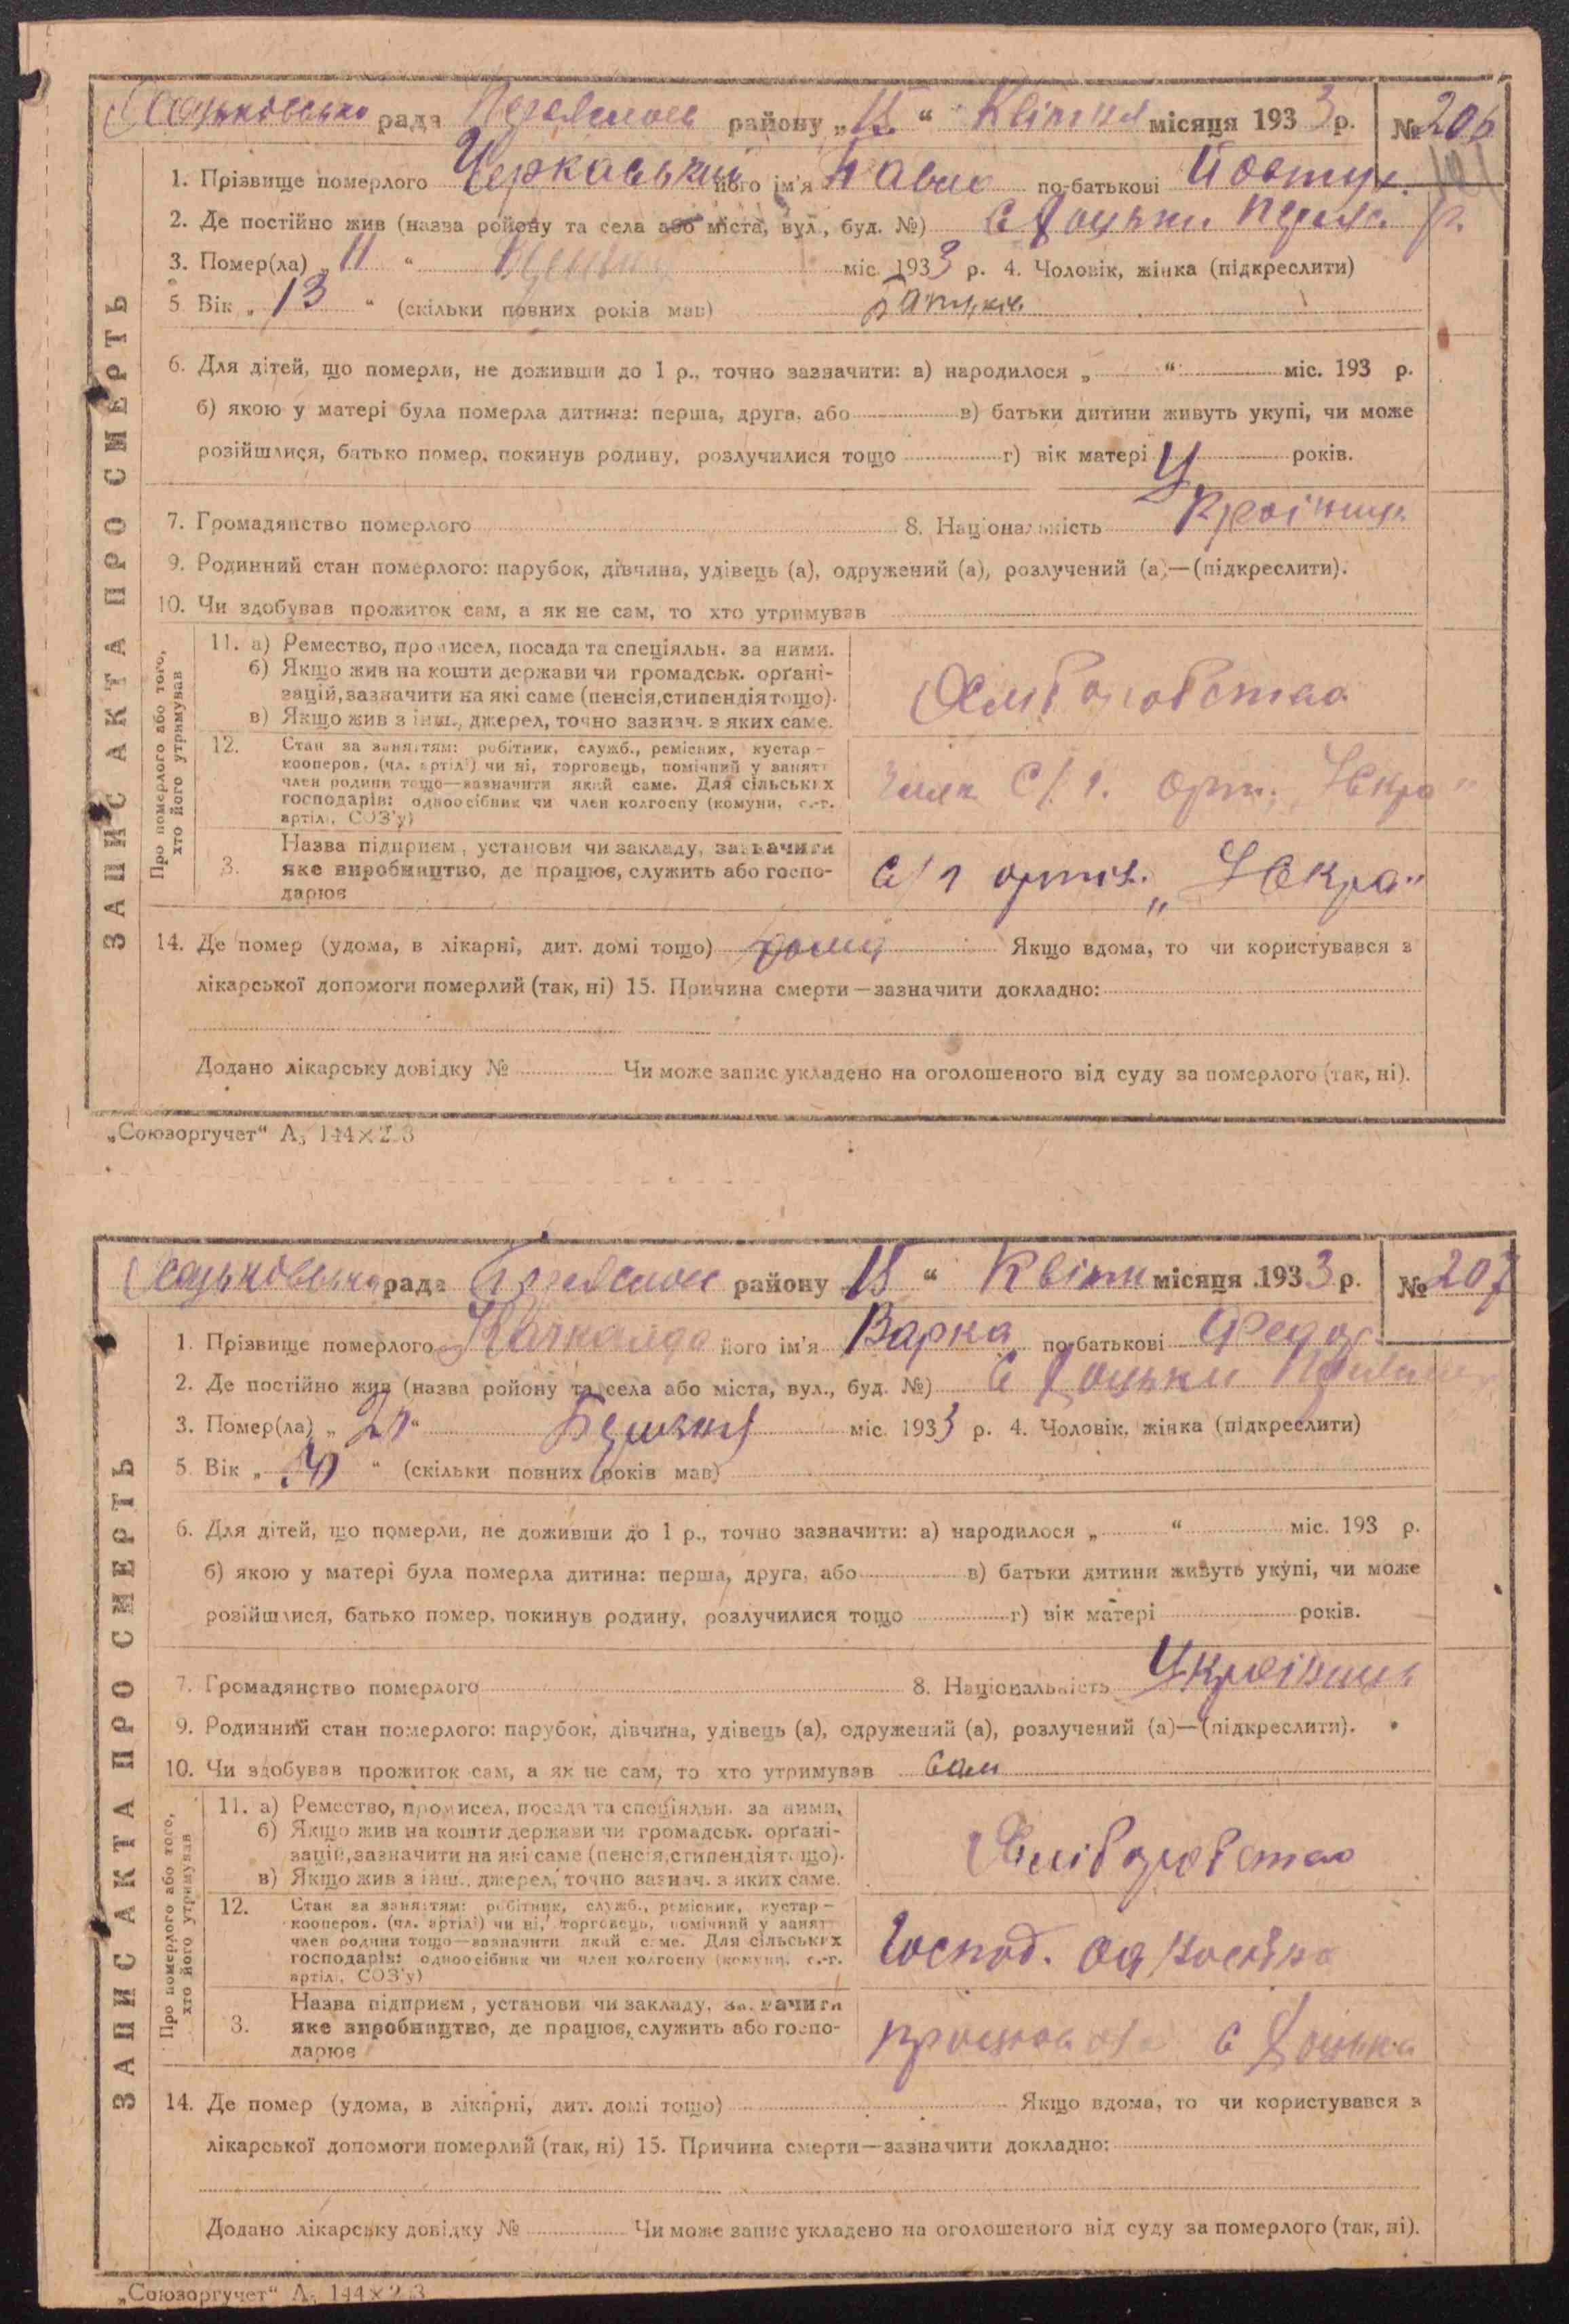 рада району „15“ Квітня місяця 1933 р. № 206
1. Прізвище померлого Черкаський його ім'я Павло по-батькові Йовтух.
2. Де постійно жив (назва ройону та села або міста, вул., буд. №) с Хоцьки р.
3. Помер(ла) „11“ міс. 1933 р. 4. Чоловік, жінка (підкреслити)
5 Вік „13“ (скільки повних років мав)
6. Для дітей, що померли, не доживши до 1 р., точно зазначити: а) народилося „ “ міс. 193 р.
б) якою у матері була померла дитина: перша, друга, або в) батьки дитини живуть укупі, чи може
розійшлися, батько помер, покинув родину, розлучилися тощо г) вік матері років.
7. Громадянство померлого 8. Національність Украінець
9. Родинний стан померлого: парубок, дівчина, удівець (а), одружений (а), розлучений (а)—(підкреслити).
10. Чи здобував прожиток сам, а як не сам, то хто утримував
Про померлого або того, хто його утримував
11. а) Ремество, промисел, посада та спеціяльн. за ними.
б) Якщо жив на кошти держави чи громадськ. орґані-
зацій, зазначити на які саме (пенсія, стипендія тощо).
в) Якщо жив з інш., джерел, точно зазнач. з яких саме.
Хліборобство
12. Стан за заняттям: робітник, служб., ремісник, кустар—
кооперов. (чл. артілі) чи ні, торговець, помічний у занятт
член родини тощо—зазначити який саме. Для сільських
господарів: одноосібник чи член колгоспу (комуни, с.-г.
артілі, СОЗ'у)
член С/г. орт. „Іскра“
3. Назва підприєм, установи чи закладу, зазначити
яке виробництво, де працює, служить або госпо-
дарює
С/г ортіл. „Іскра“
14. Де помер (удома, в лікарні, дит. домі тощо) дома Якщо вдома, то чи користувався з
лікарської допомоги померлий (так, ні) 15. Причина смерти—зазначити докладно:
Додано лікарську довідку № Чи може запис укладено на оголошеного від суду за померлого (так, ні).
ЗАПИС АКТА ПРО СМЕРТЬ
„Союзоргучет“ А5 144×2 3
рада району 15“ Квітн місяця 1933 р. № 207
1. Прізвище померлого його ім'я Варка по-батькові Федор.
2. Де постійно жив (назва ройону та села або міста, вул., буд. №) с Хоцьки
3. Помер(ла) „ “ Березня міс. 1933 р. 4. Чоловік, жінка (підкреслити)
5 Вік „ “ (скільки повних років мав)
6. Для дітей, що померли, не доживши до 1 р., точно зазначити: а) народилося „ “ міс. 193 р.
б) якою у матері була померла дитина: перша, друга, або в) батьки дитини живуть укупі, чи може
розійшлися, батько помер, покинув родину, розлучилися тощо г) вік матері років.
7. Громадянство померлого 8. Національність Украінець
9. Родинний стан померлого: парубок, дівчина, удівець (а), одружений (а), розлучений (а)—(підкреслити).
10. Чи здобував прожиток сам, а як не сам, то хто утримував сам
Про померлого або того, хто його утримував
11. а) Ремество, промисел, посада та спеціяльн. за ними,
б) Якщо жив на кошти держави чи громадськ. орґані-
зацій, зазначити на які саме (пенсія, стипендія тощо).
в) Якщо жив з інш., джерел, точно зазнач. з яких саме.
Хліборобство
12. Стан за заняттям: робітник, служб., ремісник, кустар—
кооперов. (чл. артілі) чи ні, торговець, помічний у занятт
член родини тощо—зазначити який саме. Для сільських
господарів: одноосібник чи член колгоспу (комуни, с.-г.
артілі, СОЗ'у)
Господ.
3. Назва підприєм, установи чи закладу, зазначити
яке виробництво, де працює, служить або госпо-
дарює
с Хоцьки
14. Де помер (удома, в лікарні, дит. домі тощо) Якщо вдома, то чи користувався з
лікарської допомоги померлий (так, ні) 15. Причина смерти—зазначити докладно:
Додано лікарську довідку № Чи може запис укладено на оголошеного від суду за померлого (так, ні).
ЗАПИС АКТА ПРО СМЕРТЬ
„Союзоргучет“ А5 144×2 3